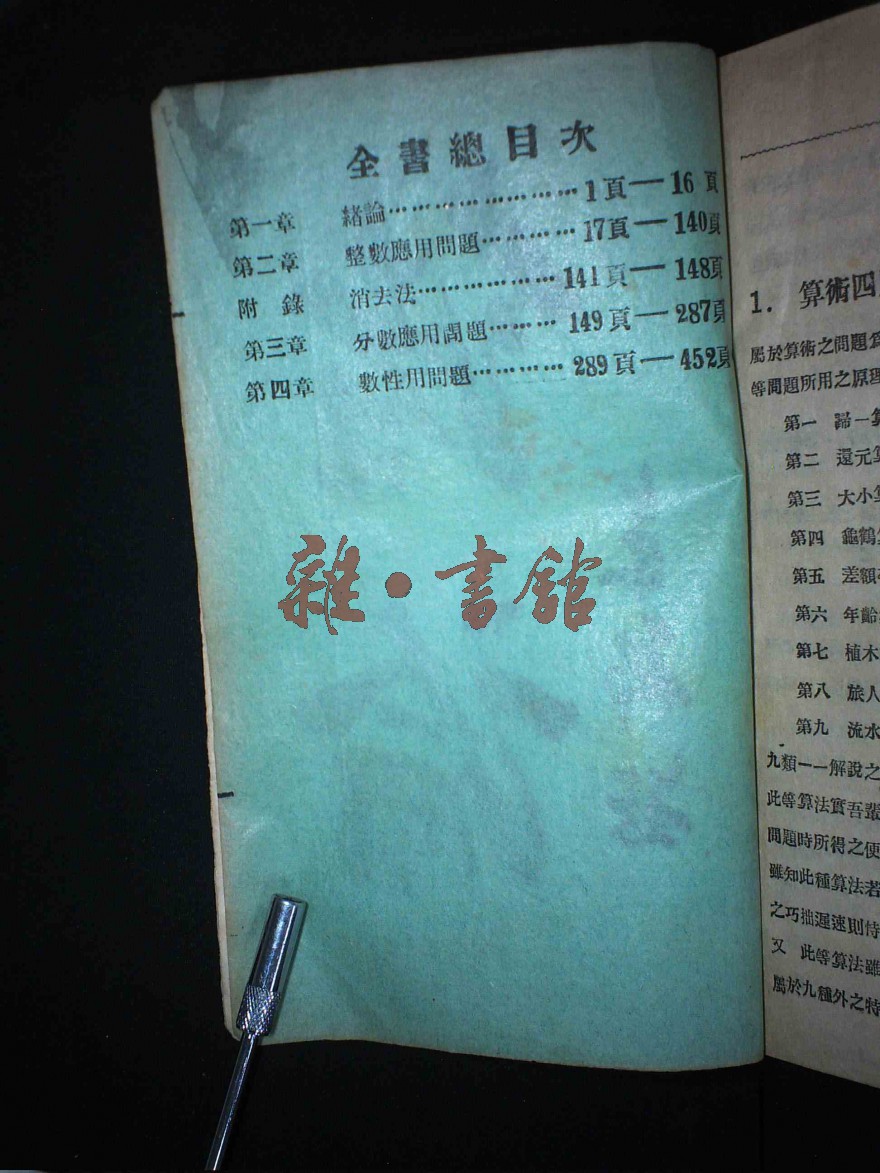 全書總目次
第一章 緒論……………………1頁—16頁
第二章 整數應用問題…………17頁—140頁
附錄 消去法………………141頁—148頁
第三章 分數應用問題………149頁—287頁
第四章 數性用問題…………289頁—452頁
雜·書館
1. 算術四
屬於算術之問題
等問題所用之原理
第一 歸一算
第二 還元算
第三 大小算
第四 龜鶴算
第五 差額
第六 年齡
第七 植木
第八 旅人
第九 流水
九類一一解說之
此等算法實吾輩
問題時所得之便
雖知此種算法若
之巧拙遲速則恃
又 此等算法雖
屬於九種外之特